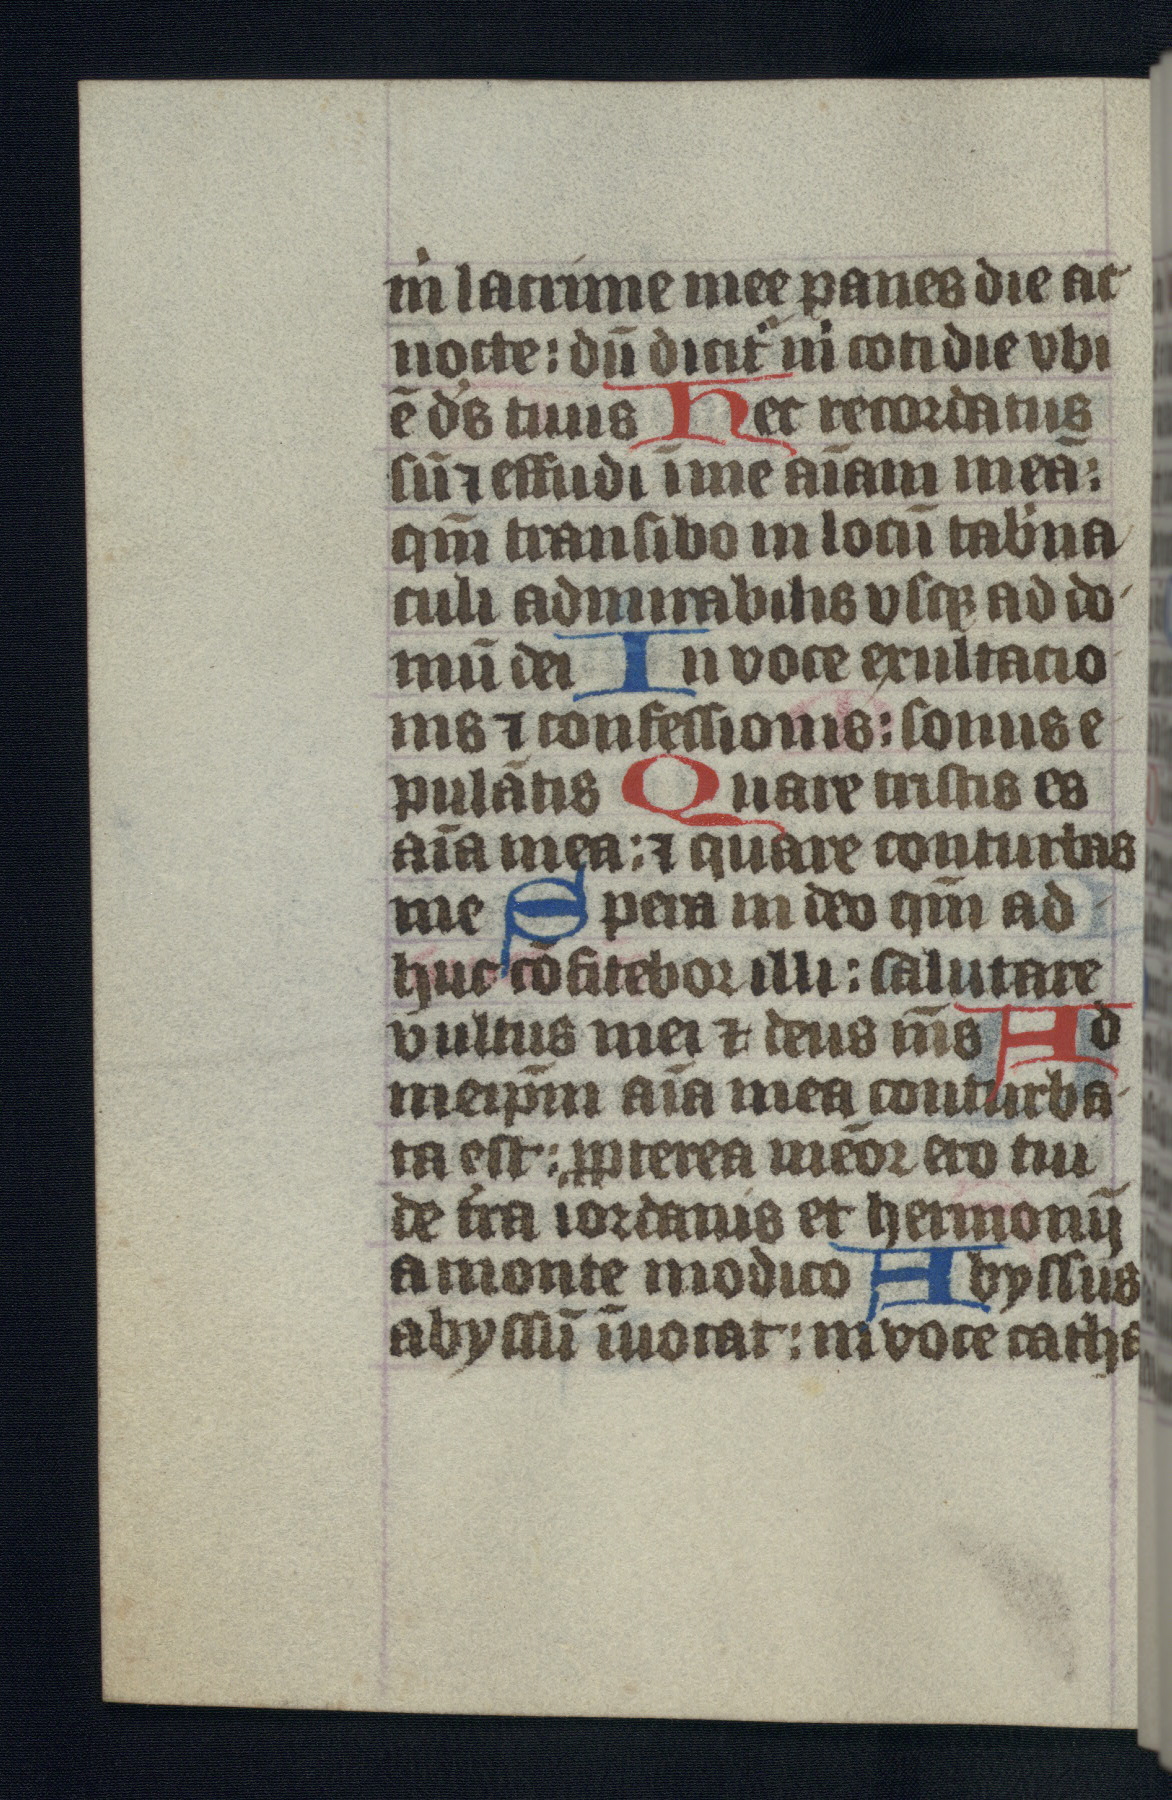 m̉ lacrime mee panes die ac
nocte: dū dicit᷑ m̉ cotidie vbi
ē ds̉ tuus Hec recordatus
sū ⁊ effudi ī me aīam meā:
qm̄ transibo in locū tab̉na
culi admirabilis vsqꝫ ad do
mū dei In voce exultacio
nis ⁊ confessionis: sonus e
pulātis Quare tristis es
aīa mea: ⁊ quare conturbas
me Spera in deo qm̄ ad
huc cōfitebor illi: salutare
vultus mei ⁊ deus m̄s Ad
meip̄m aīa mea conturba
ta est: ꝓpterea mēor ero tui
de t̉ra iordanis et hermonij
a monte modico Abyssus
abyssū īuocat: in voce catha